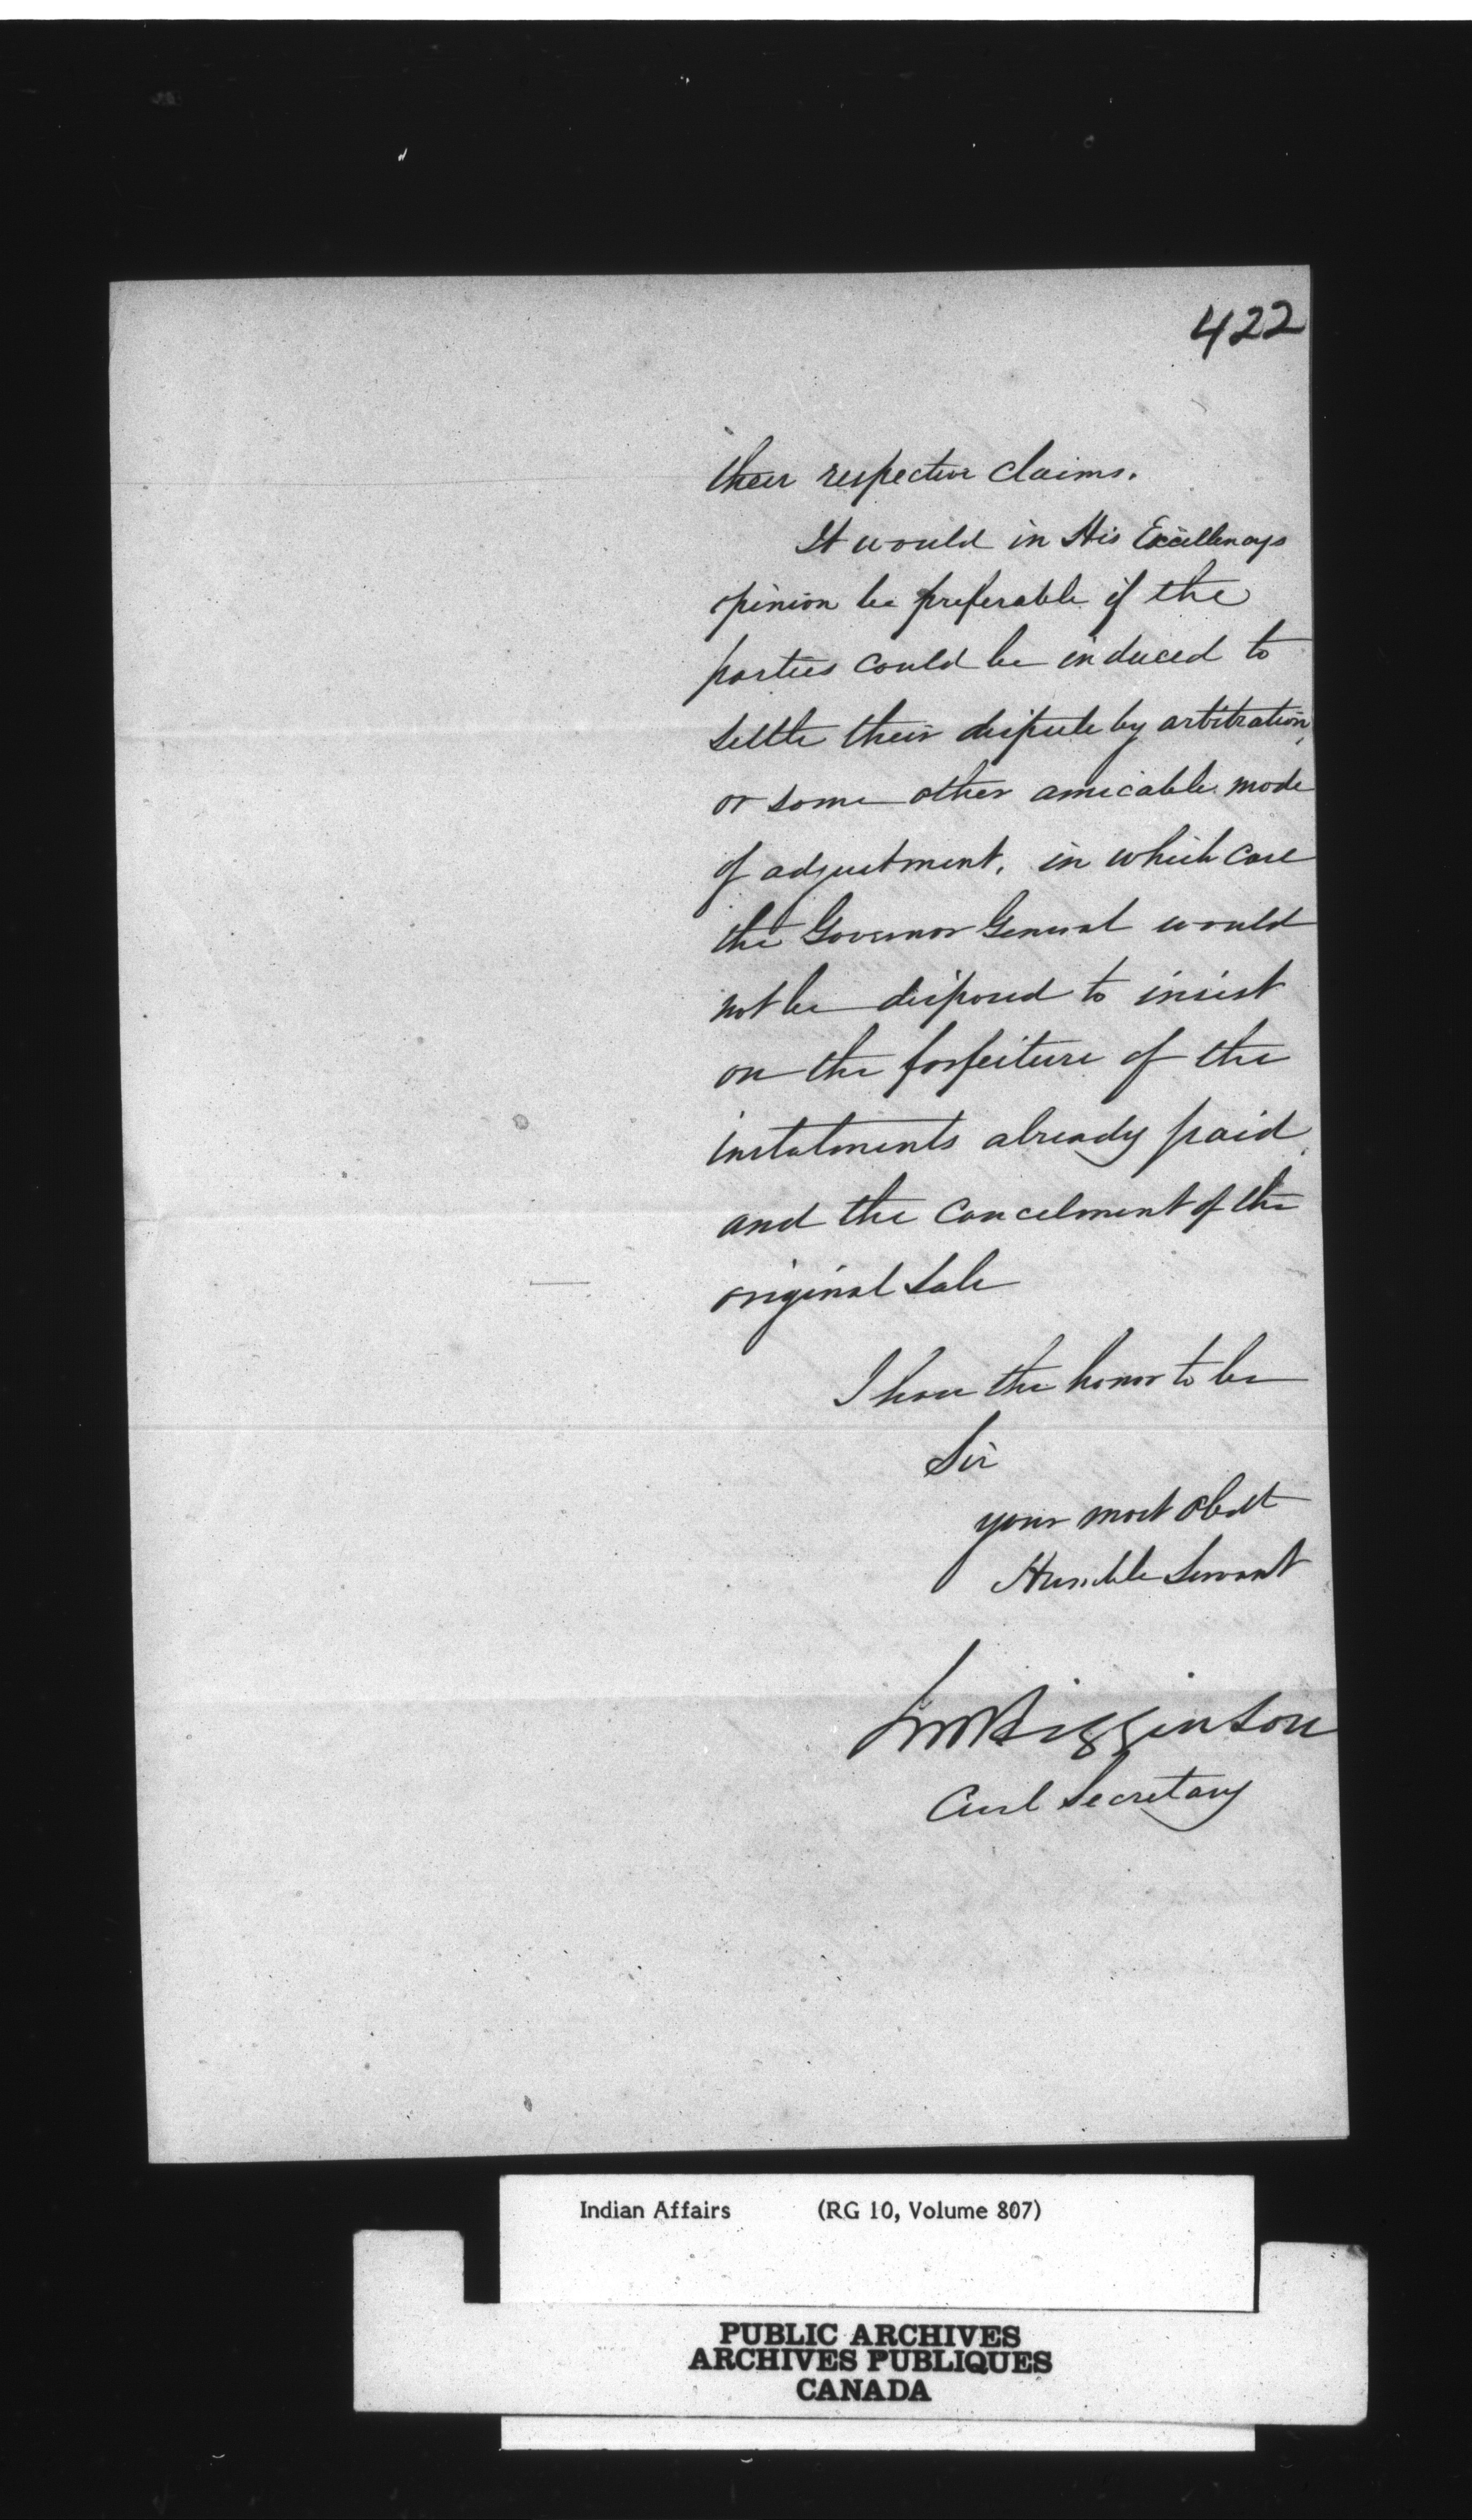 422
their respective claims.
It would in His Excellencys
opinion be preferable if the
parties could be induced to
settle their dispute by arbitration,
or some other amicable mode
of adjustment, in which case
the Governor General would
not be disposed to insist
on the forfeiture of the
instalments already paid,
and the cancelment of the
original sale
I have the honor to be
Sir
your most obedt
Humble Servant
Higginson
Civil Secretary
Indian Affairs (RG 10, Volume 807)
PUBLIC ARCHIVES
ARCHIVES PUBLIQUES
CANADA